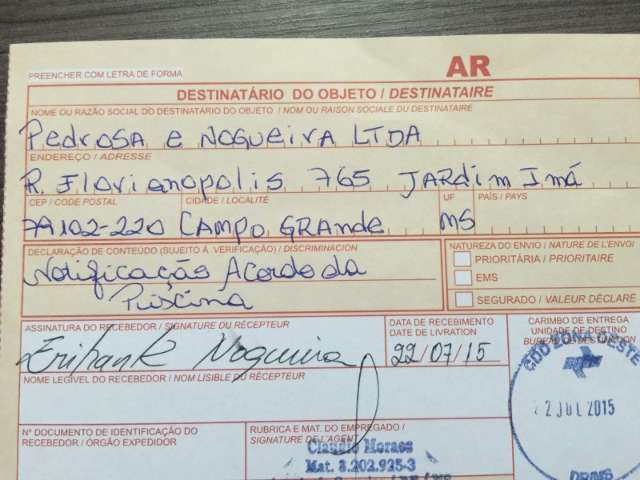 PREENCHER COM LETRA DE FORMA
AR
DESTINATÁRIO DO OBJETO / DESTINATAIRE
NOME OU RAZÃO SOCIAL DO DESTINATÁRIO DO OBJETO / NOM OU RAISON SOCIALE DU DESTINATAIRE
Pedrosa e Nogueira LTDA
ENDEREÇO / ADRESSE
R. Florianopolis 765 Jardim Imá
CEP / CODE POSTAL CIDADE / LOCALITÉ UF PAÍS / PAYS
79102-220 Campo Grande MS
DECLARAÇÃO DE CONTEÚDO (SUJEITO Á VERIFICAÇÃO) / DISCRIMINACION
Notificação Acordo da
Piscina
NATUREZA DO ENVIO / NATURE DE L'ENVOI
PRIORITÁRIA / PRIORITAIRE
EMS
SEGURADO / VALEUR DÉCLARÉ
ASSINATURA DO RECEBEDOR / SIGNATURE DU RÉCEPTEUR
Nogueira
DATA DE RECEBIMENTO
DATE DE LIVRATION
22/07/15
CARIMBO DE ENTREGA
UNIDADE DE DESTINO
BUREAU DE DESTINATION
22 JUL 2015
NOME LEGÍVEL DO RECEBEDOR / NOM LISIBLE DU RÉCEPTEUR
Nº DOCUMENTO DE IDENTIFICAÇÃO DO
RECEBEDOR / ÓRGÃO EXPEDIDOR
RUBRICA E MAT. DO EMPREGADO /
SIGNATURE DE L'AGENT
Claudio Moraes
Mat. 8.202.925-3